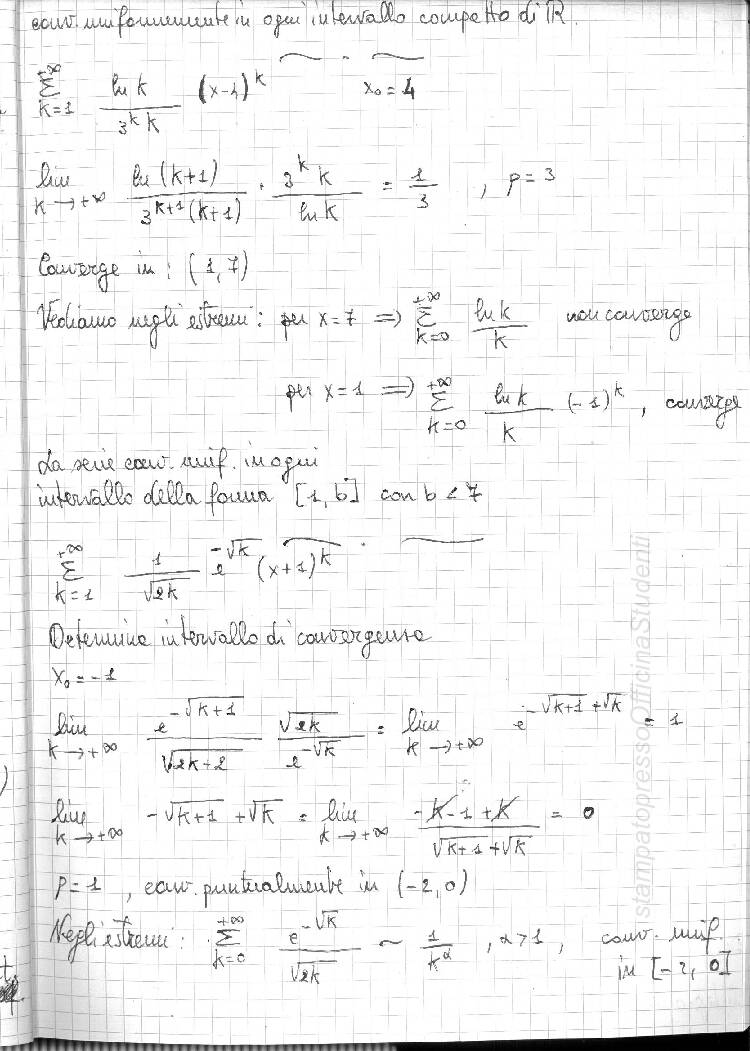 conv. uniformemente in ogni intervallo compatto di ℝ.
+∞ Σ k=1 ln k / 3^k k (x-4)^k x₀ = 4
lim k→+∞ ln(k+1) / 3^(k+1)(k+1) · 3^k k / ln k = 1/3 , ρ = 3
Converge in: (1,7)
Vediamo negli estremi: per x=7 ⇒ +∞ Σ k=0 ln k / k non converge
per x=1 ⇒ +∞ Σ k=0 ln k / k (-1)^k , converge
La serie conv. unif. in ogni
intervallo della forma [1, b] con b < 7
+∞ Σ k=1 1/√2k e^(-√k) (x+1)^k
Determina intervallo di convergenza
x₀ = -1
lim k→+∞ e^(-√k+1) / √2k+2 √2k / e^(-√k) = lim k→+∞ e^(-√k+1 + √k) = 1
lim k→+∞ -√k+1 + √k = lim k→+∞ -k-1+k / √k+1 + √k = 0
ρ = 1 , conv. puntualmente in (-2,0)
Negli estremi: +∞ Σ k=0 e^(-√k) / √2k ~ 1/k^α , α > 1 , conv. unif.
in [-2, 0]
stampatopressoOfficinaStudenti